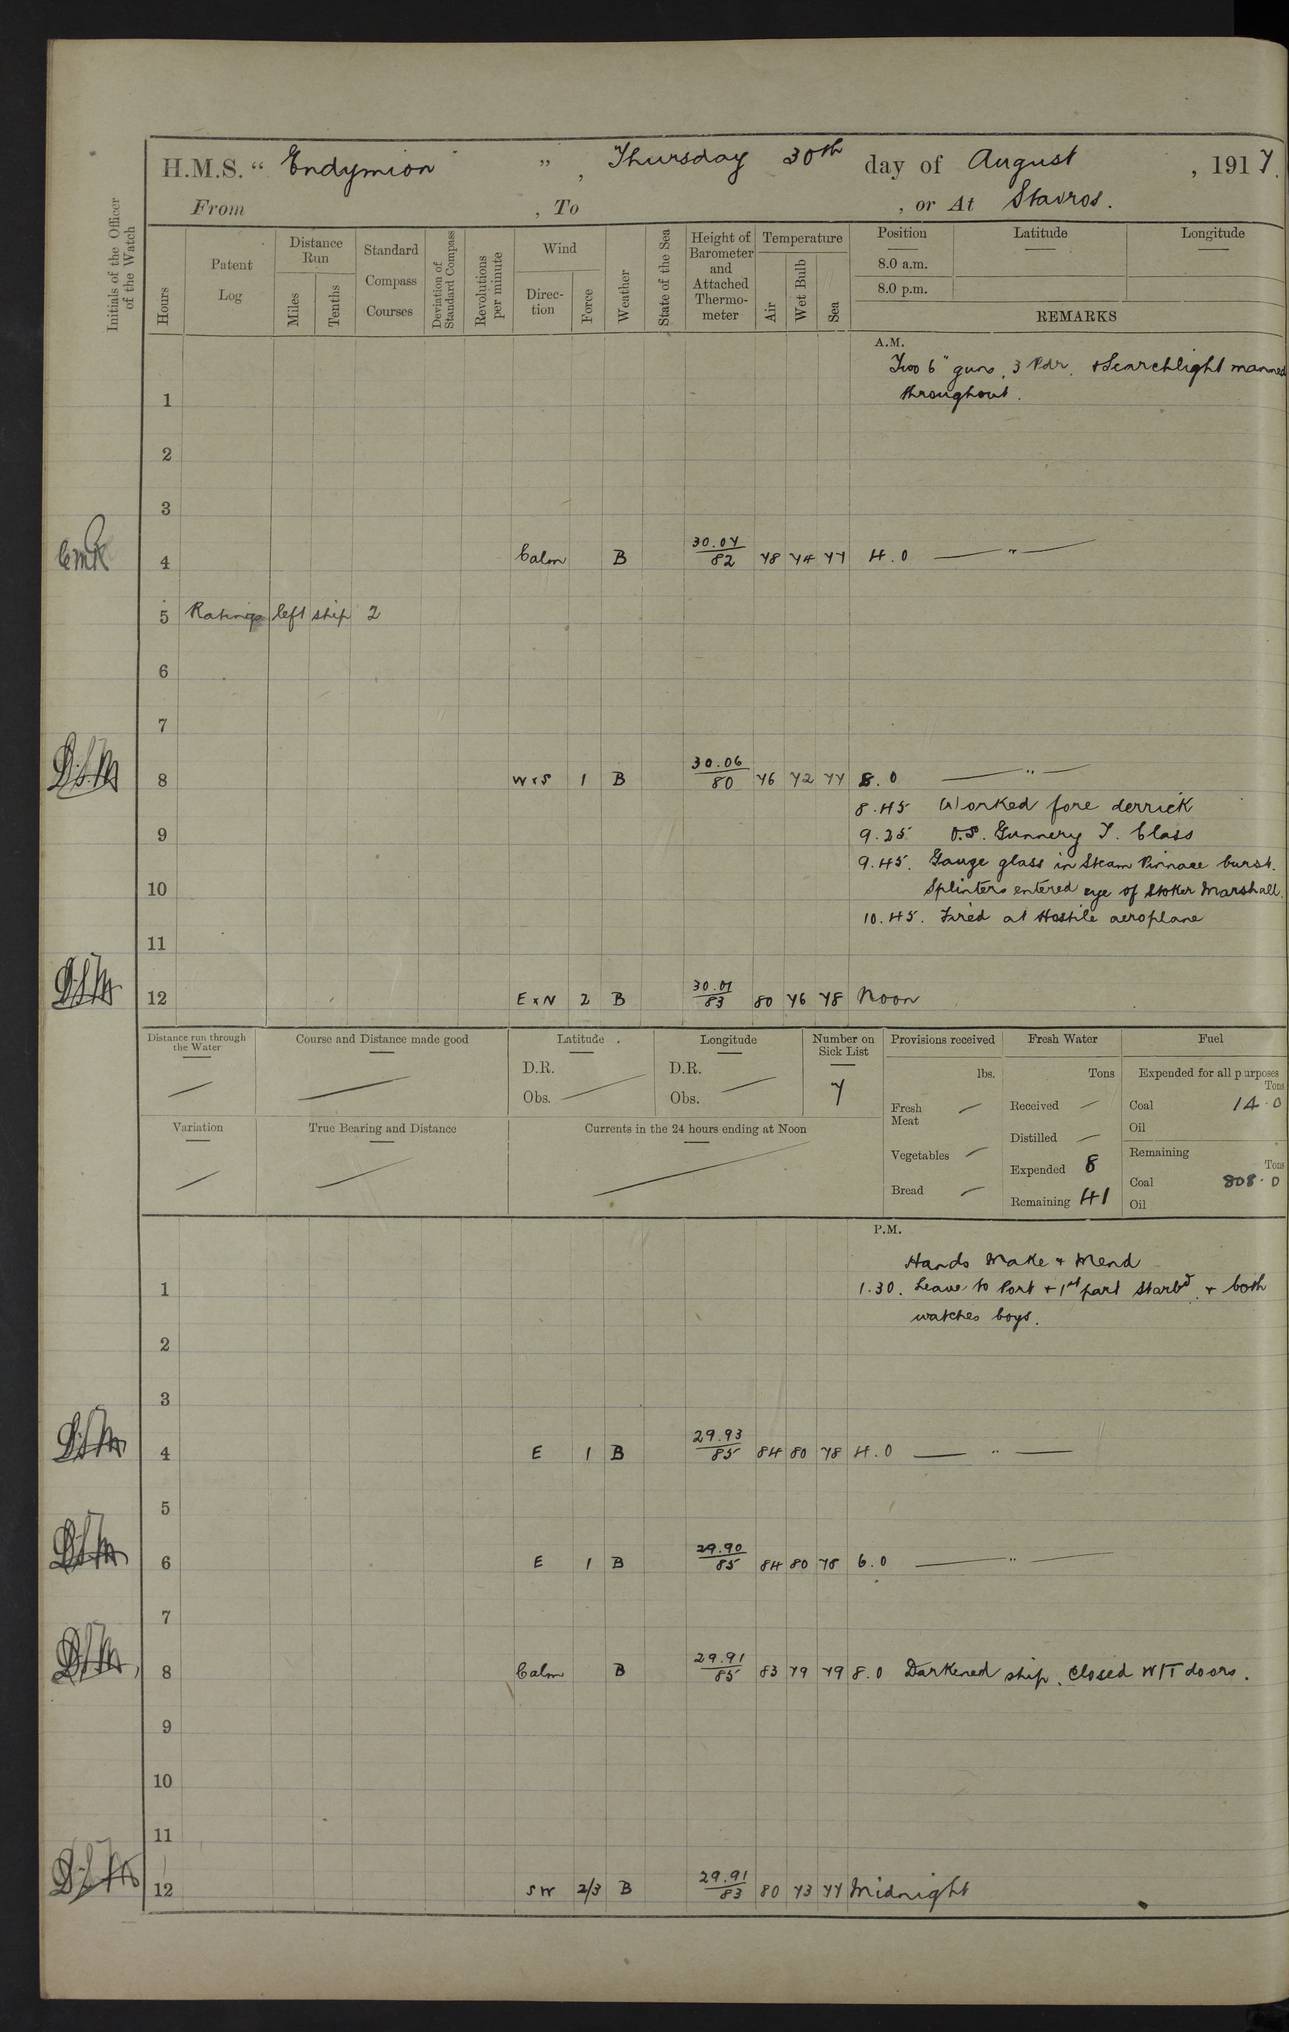 H.M.S. “ Endymion ”, Thursday 30th day of August, 1917.
From , To , or At Stavros.
Initials of the Officer of the Watch
Hours
Patent Log
Distance Run
Miles
Tenths
Standard Compass Courses
Deviation of Standard Compass
Revolutions per minute
Wind
Direction
Force
Weather
State of the Sea
Height of Barometer and Attached Thermometer
Temperature
Air
Wet Bulb
Sea
Position
8.0 a.m.
8.0 p.m.
Latitude
Longitude
REMARKS
A.M.
Two 6" guns, 3 Pdr. + Searchlight manned
throughout.
1
2
3
4 Calm B 30.07/82 78 74 77 4.0 — " —
5 Ratings left ship 2
6
7
8 W x S 1 B 30.06/80 76 72 77 8.0 — " —
8.45 Worked fore derrick
9 9.25 O.S. Gunnery T. Class
9.45. Gauge glass in Steam Pinnace burst.
10 Splinters entered eye of Stoker Marshall.
10.45. Fired at Hostile aeroplane
11
12 E x N 2 B 30.01/83 80 76 78 Noon
Distance run through the Water
—
Course and Distance made good
—
Latitude
D.R.
Obs. —
Longitude
D.R.
Obs. —
Number on Sick List
7
Provisions received
lbs.
Fresh Meat —
Vegetables —
Bread —
Fresh Water
Tons
Received —
Distilled —
Expended 8
Remaining 41
Fuel
Expended for all purposes
Tons
Coal 14.0
Oil
Remaining
Tons
Coal 808.0
Oil
Variation
—
True Bearing and Distance
—
Currents in the 24 hours ending at Noon
—
P.M.
Hands Make & Mend
1 1.30. Leave to Port + 1st part Starbd. + both
watches boys.
2
3
4 E 1 B 29.93/85 84 80 78 4.0 — " —
5
6 E 1 B 29.90/85 84 80 78 6.0 — " —
7
8 Calm B 29.91/85 83 79 79 8.0 Darkened ship. Closed W/T doors.
9
10
11
12 SW 2/3 B 29.91/83 80 73 77 Midnight